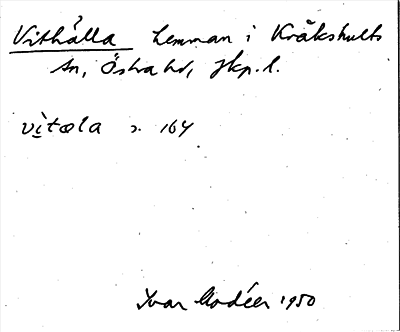 Vithålla hemman i Kråkshults
sn, Östra hd, Jkp. l.
vìtœla s. 164
Ivar Modéer 1950